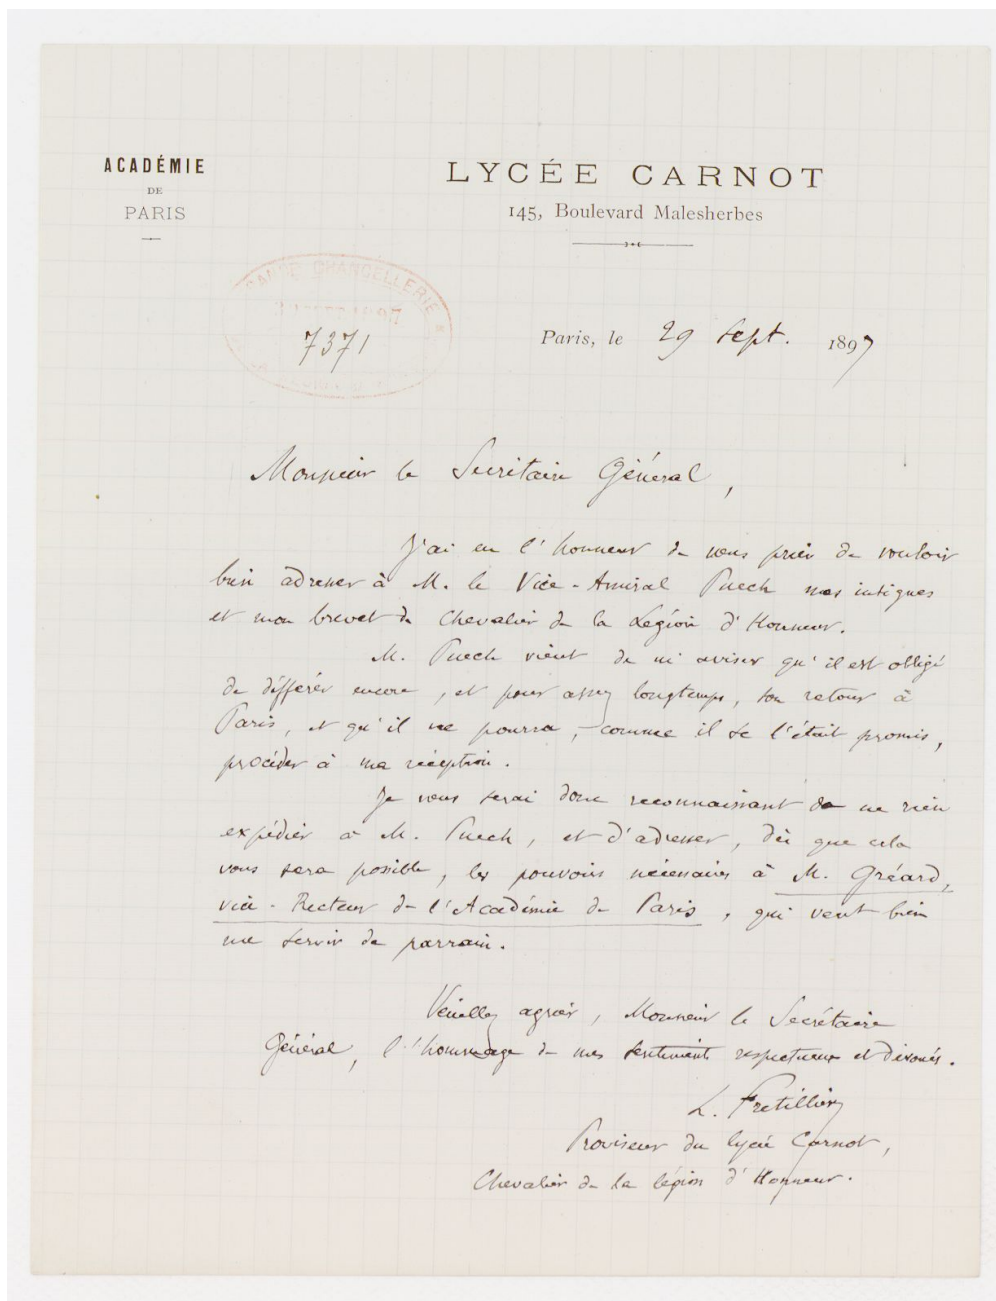 ACADÉMIE
DE
PARIS
LYCÉE CARNOT
145, Boulevard Malesherbes
GRANDE CHANCELLERIE
7371
Paris, le 29 Sept. 1897
Monsieur le Secrétaire Général,
J'ai eu l'honneur de vous prier de vouloir
bien adresser à M. le Vice-Amiral Puech mes insignes
et mon brevet de Chevalier de la Légion d'Honneur.
M. Puech vient de m'aviser qu'il est obligé
de différer encore, et pour assez longtemps, son retour à
Paris, et qu'il ne pourra, comme il se l'était promis,
procéder à ma réception.
Je vous serai donc reconnaissant de ne rien
expédier à M. Puech, et d'adresser, dès que cela
vous sera possible, les pouvoirs nécessaires à M. Gréard,
vice-Recteur de l'Académie de Paris, qui veut bien
me servir de parrain.
Veuillez agréer, Monsieur le Secrétaire
Général, l'hommage de mes sentiments respectueux et dévoués.
L. Fretillier
Proviseur du lycée Carnot,
Chevalier de la légion d'Honneur.